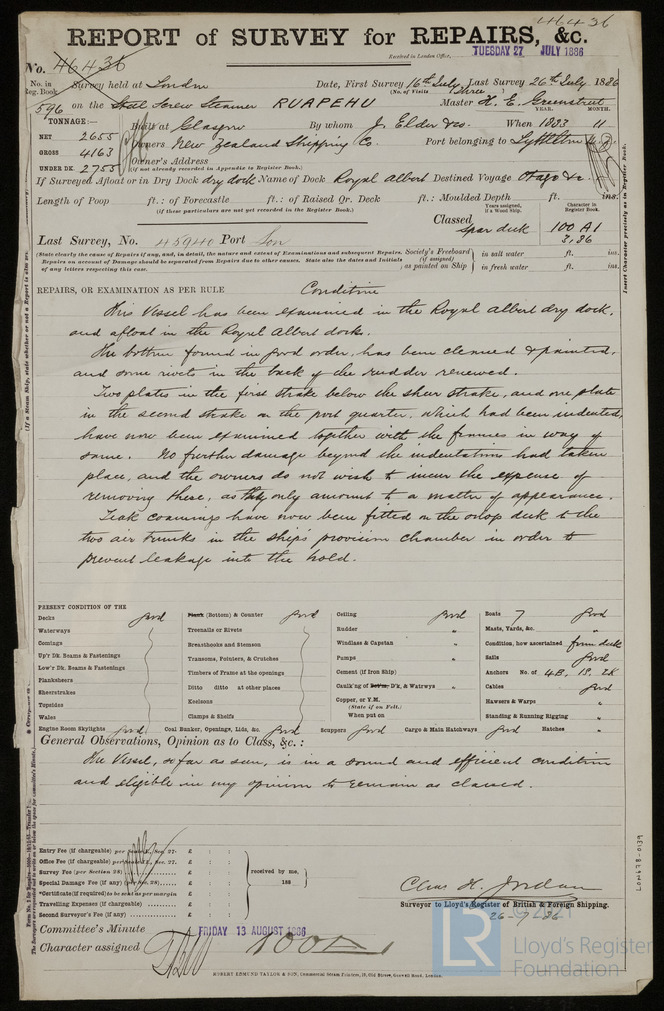 46436
REPORT of SURVEY for REPAIRS, &c.
Received in London Office, TUESDAY 27 JULY 1886
No. 46436
No. in Reg. Book. Survey held at London Date, First Survey 16th July Last Survey 26th July 1886
(No. of Visits three)
596 on the Steel Screw Steamer RUAPEHU Master H. E. Greenstreet
TONNAGE:— Built at Glasgow By whom J. Elder & Co. When 1883 11
YEAR. MONTH.
NET 2655 Owners New Zealand Shipping Co. Port belonging to Lyttelton
GROSS 4163 Owner's Address
UNDER DK. 2755 (if not already recorded in Appendix to Register Book.)
If Surveyed Afloat or in Dry Dock dry dock Name of Dock Royal Albert Destined Voyage Otago &c.
Length of Poop ft.: of Forecastle ft.: of Raised Qr. Deck ft.: Moulded Depth ft. ins.
(if these particulars are not yet recorded in the Register Book.)
Years assigned, if a Wood Ship. Character in Register Book.
Classed spar deck 100 A1
3,86
Last Survey, No. 45940 Port Lon
(State clearly the cause of Repairs if any, and, in detail, the nature and extent of Examinations and subsequent Repairs. Repairs on account of Damage should be separated from Repairs due to other causes. State also the dates and initials of any letters respecting this case.
Society's Freeboard (if assigned) as painted on Ship in salt water ft. ins.
in fresh water ft. ins.
Insert Character precisely as in Register Book.
REPAIRS, OR EXAMINATION AS PER RULE Condition
This Vessel has been examined in the Royal Albert dry dock,
and afloat in the Royal Albert docks.
The bottom found in good order, has been cleaned & painted,
and some rivets in the back of the rudder renewed.
Two plates in the first strake below the sheer strake, and one plate
in the second strake on the port quarter, which had been indented,
have now been examined together with the frames in way of
same. No further damage beyond the indentations had taken
place, and the owners do not wish to incur the expense of
removing these, as they only amount to a matter of appearance.
Teak coamings have now been fitted on the orlop deck to the
two air trunks in the ship's provision chamber in order to
prevent leakage into the hold.
PRESENT CONDITION OF THE
Decks good
Waterways
Comings
Up'r Dk. Beams & Fastenings
Low'r Dk. Beams & Fastenings
Planksheers
Sheerstrakes
Topsides
Wales
Plank (Bottom) & Counter good
Treenails or Rivets
Breasthooks and Stemson
Transoms, Pointers, & Crutches
Timbers of Frame at the openings
Ditto ditto at other places
Keelsons
Clamps & Shelfs
Ceiling good
Rudder "
Windlass & Capstan "
Pumps "
Cement (if Iron Ship) "
Caulk'ng of Bot'm, D'k, & Waterwys "
Copper, or Y.M.
(State if on Felt.)
When put on
Boats 7 good
Masts, Yards, &c. "
Condition, how ascertained from deck
Sails good
Anchors No. of 4B, 1S, 2K
Cables good
Hawsers & Warps "
Standing & Running Rigging "
Engine Room Skylights good Coal Bunker, Openings, Lids, &c. good Scuppers good Cargo & Main Hatchways good Hatches "
General Observations, Opinion as to Class, &c.:
The Vessel, so far as seen, is in a sound and efficient condition
and eligible in my opinion to remain as classed.
Entry Fee (if chargeable) per Section 27. £ : :
Office Fee (if chargeable) per Section 27. £ : :
Survey Fee (per Section 28) £ : :
Special Damage Fee (if any) (per Sec. 28) £ : :
*Certificate (if required) to be sent as per margin £ : :
Travelling Expenses (if chargeable) £ : :
Second Surveyor's Fee (if any) £ : :
received by me,
188
Chas H. Jordan
Surveyor to Lloyd's Register of British & Foreign Shipping.
26-7-86
Committee's Minute FRIDAY 13 AUGUST 1886
Character assigned 100A1
ROBERT EDMUND TAYLOR & SON, Commercial Steam Printers, 19, Old Street, Goswell Road, London.
LON478-0139
LR © 2021
Lloyd's Register
Foundation